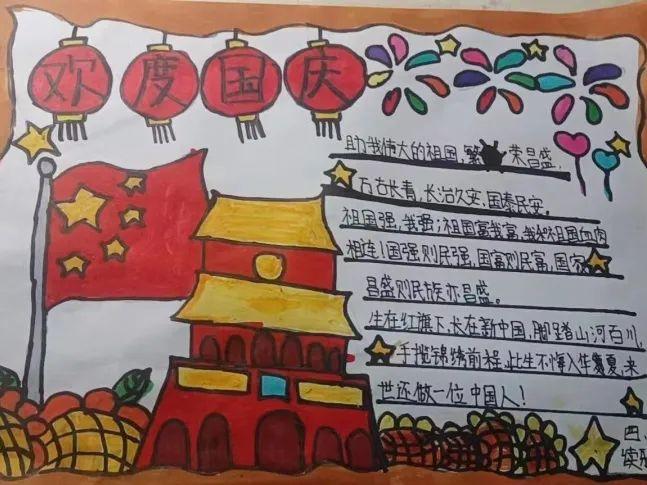 欢度国庆
助我伟大的祖国,繁荣昌盛,
万古长青,长治久安,国泰民安。
祖国强,我强;祖国富我富,我和祖国血肉
相连!国强则民强,国富则民富,国家
昌盛则民族亦昌盛。
生在红旗下,长在新中国,脚踏山河百川,
手揽锦绣前程,此生不悔入华夏,来
世还做一位中国人!
四.